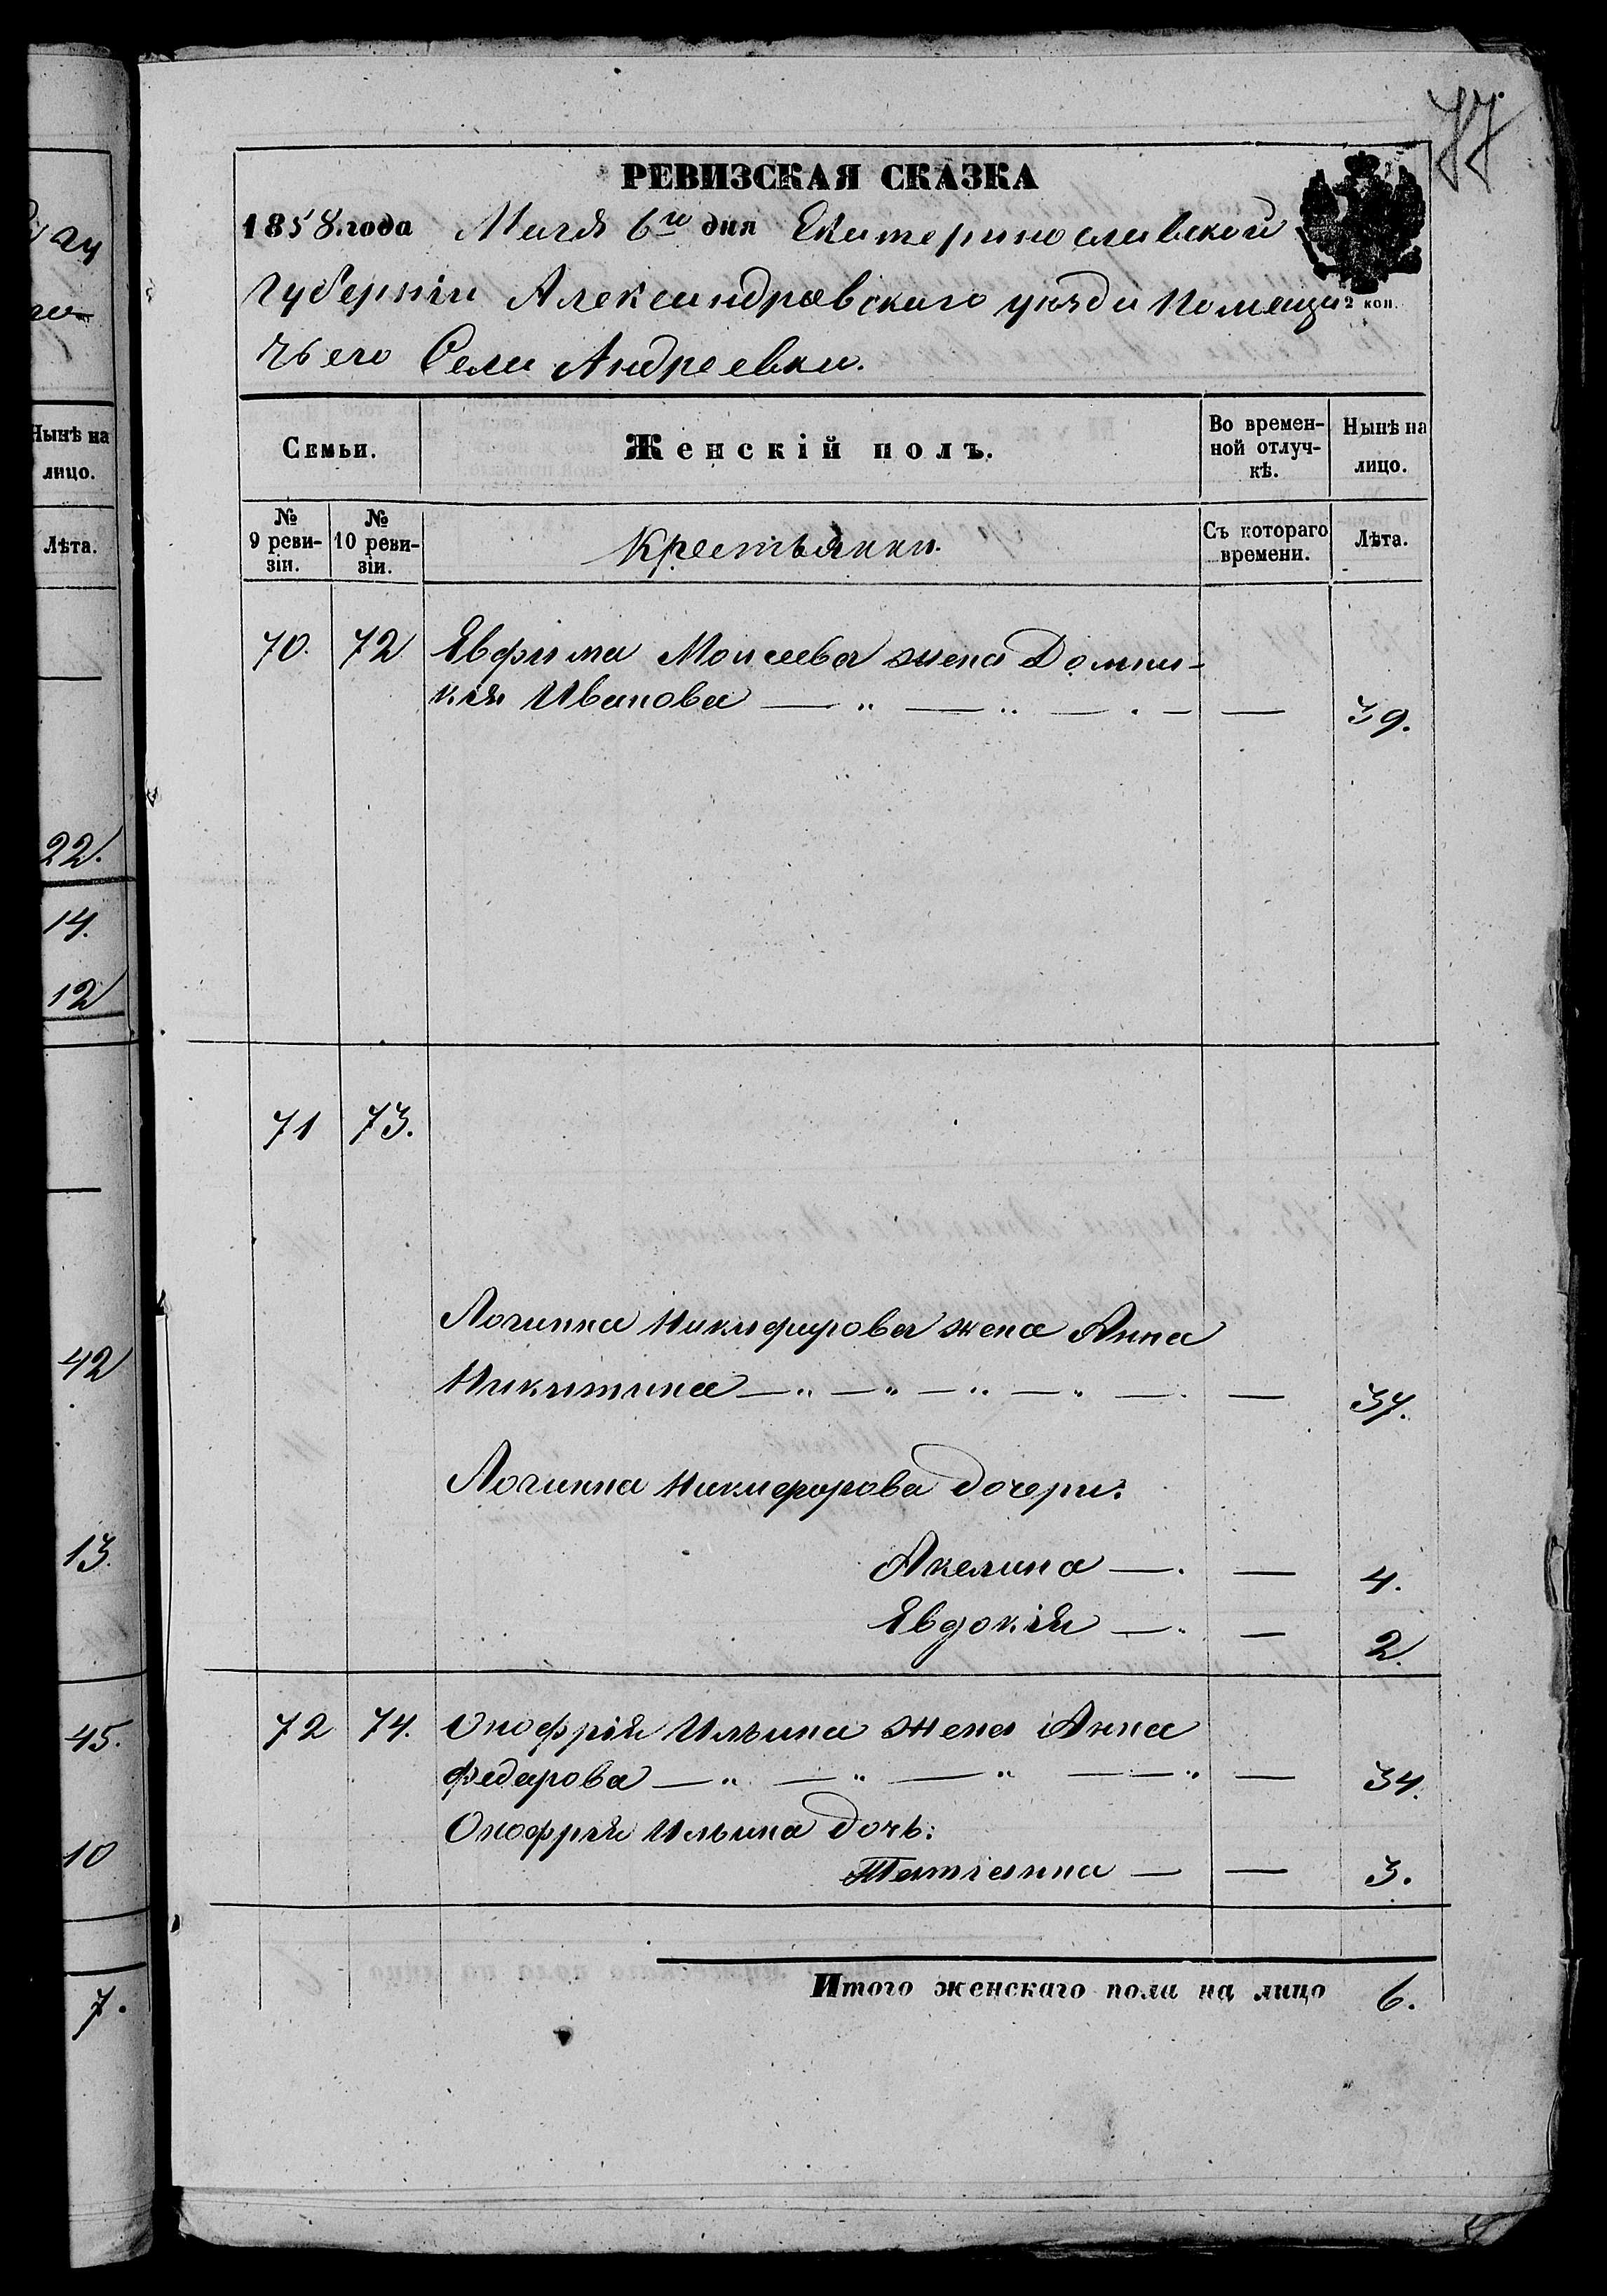 77.
РЕВИЗСКАЯ СКАЗКА
1858. года Мая 6го дня Екатеринославской
Губерніи Александровскаго уѣзда Помѣщи
2 коп.
чьего Села Андреевки.
Семьи. Женскій полъ. Во времен-ной отлуч-кѣ. Нынѣ на лицо.
№ 9 реви-зіи. № 10 реви-зіи. Крестьянки. Съ котораго времени. Лѣта.
70. 72 Евфима Моисеева жена Домни-
кія Иванова — " — " — " — — 39.
71 73.
Логинна Никифорова жена Анна
Никитина — " — " — " — " — — 37.
Логинна Никифорова дочери:
Акелина — . — 4.
Евдокія — . — 2.
72 74. Онофрія Ильина жена Анна
Федарова — " — " — " — — " — 34.
Онофрія Ильина дочь:
Татіанна — — 3.
Итого женскаго пола на лицо 6.
Нынѣ на
лицо.
Лѣта.
22.
14.
12
42
13.
45.
10
7.